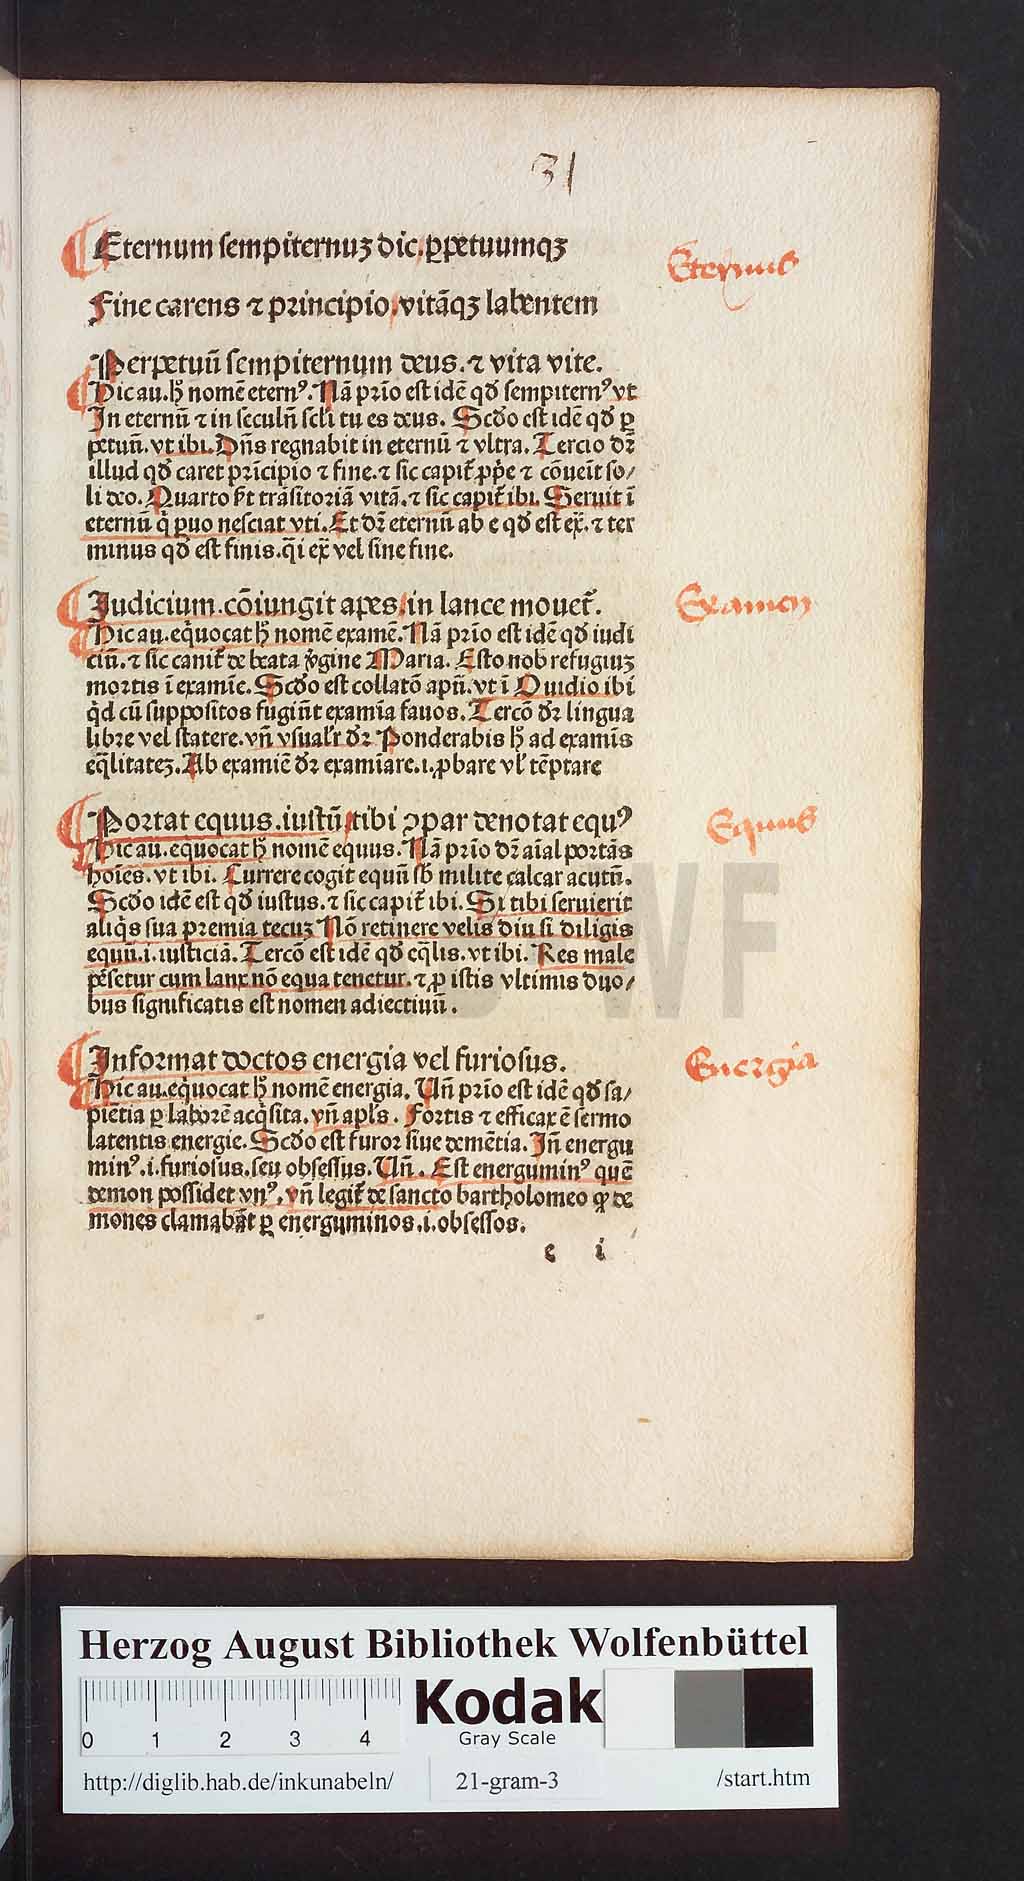 31
Eternum sempiternuʒ dic. ꝑpetuumqꝫ
Eternus
Fine carens ⁊ principio vitāqꝫ labentem
Perpetuū sempiternum deus. ⁊ vita vite.
Hic au. hꝫ nomē eternꝰ. Nā prīo est idē qd̕ sempiternꝰ vt
In eternū ⁊ in seculū scl̄i tu es deus. Scd̕o est idē qd̕ ꝑ
petuū. vt ibi. Dn̄s regnabit in eternū ⁊ vltra. Tercio dꝛ̄
illud qd̕ caret prīcipio ⁊ fine. ⁊ sic capit̄ ꝓpͤe ⁊ cōueīt so/
li deo. Quarto ꝓt trāsitoriā vitā. ⁊ sic capit̄ ibi. Seruit ī
eternū q̇ ꝑuo nesciat vti. Et dꝛ̄ eternū ab e qd̕ est ex̄. ⁊ ter
minus qd̕ est finis. q̄i ex̄ vel sine fine.
Judicium. cōiungit apes in lance mouet̄.
Examen
Hic au. eq̇uocat hꝫ nomē examē. Nā prīo est idē qd̕ iudi
ciū. ⁊ sic canit̄ de beata v̇gine Maria. Esto nob refugiuʒ
mortis ī examīe. Scd̕o est collatō apū. vt ī Ouidio ibi
q̇d cū suppositos fugiūt examīa fauos. Tercō dꝛ̄ lingua
libre vel statere. vn̄ vsualr̄ dꝛ̄ Ponderabis hꝫ ad examīs
eq̄litateʒ. Ab examīe dꝛ̄ examīare. i. ꝓbare vl̕ tēptare
Portat equus. iustū tibi ꝯpar denotat equꝰ
Equus
Hic au. equocat hꝫ nomē equus. Nā prīo dꝛ̄ aīal portās
hoīes. vt ibi. Currere cogit equū sb̕ milite calcar acutū.
Scd̕o idē est qd̕ iustus. ⁊ sic capit̄ ibi. Si tibi seruierit
aliq̇s sua premia tecuʒ Nō retinere velis diu si diligis
equū. i. iusticiā. Tercō est idē qd̕ eq̄lis. vt ibi. Res male
pēsetur cum lanx nō equa tenetur. ⁊ ꝓ istis vltimis duo/
bus significatis est nomen adiectiuū.
Informat doctos energia vel furiosus.
Energia
Hic au. eq̇uocat hꝫ nomē energia. Vn̄ prīo est idē qd̕ sa/
piētia ꝑ laborē acq̇sita. vn̄ apl̄s. Fortis ⁊ efficax ē sermo
latentis energie. Scd̕o est furor siue demētia. Jn̄ energu
minꝰ. i. furiosus. seu obsessus. Vn̄. Est energuminꝰ quē
demon possidet vnꝰ. vn̄ legit̄ de sancto bartholomeo ꝙ de
mones clamabāt ꝑ energuminos. i. obsessos.
e i
HAB WF
Herzog August Bibliothek Wolfenbüttel
0 1 2 3 4
Kodak
Gray Scale
http://diglib.hab.de/inkunabeln/
21-gram-3
/start.htm